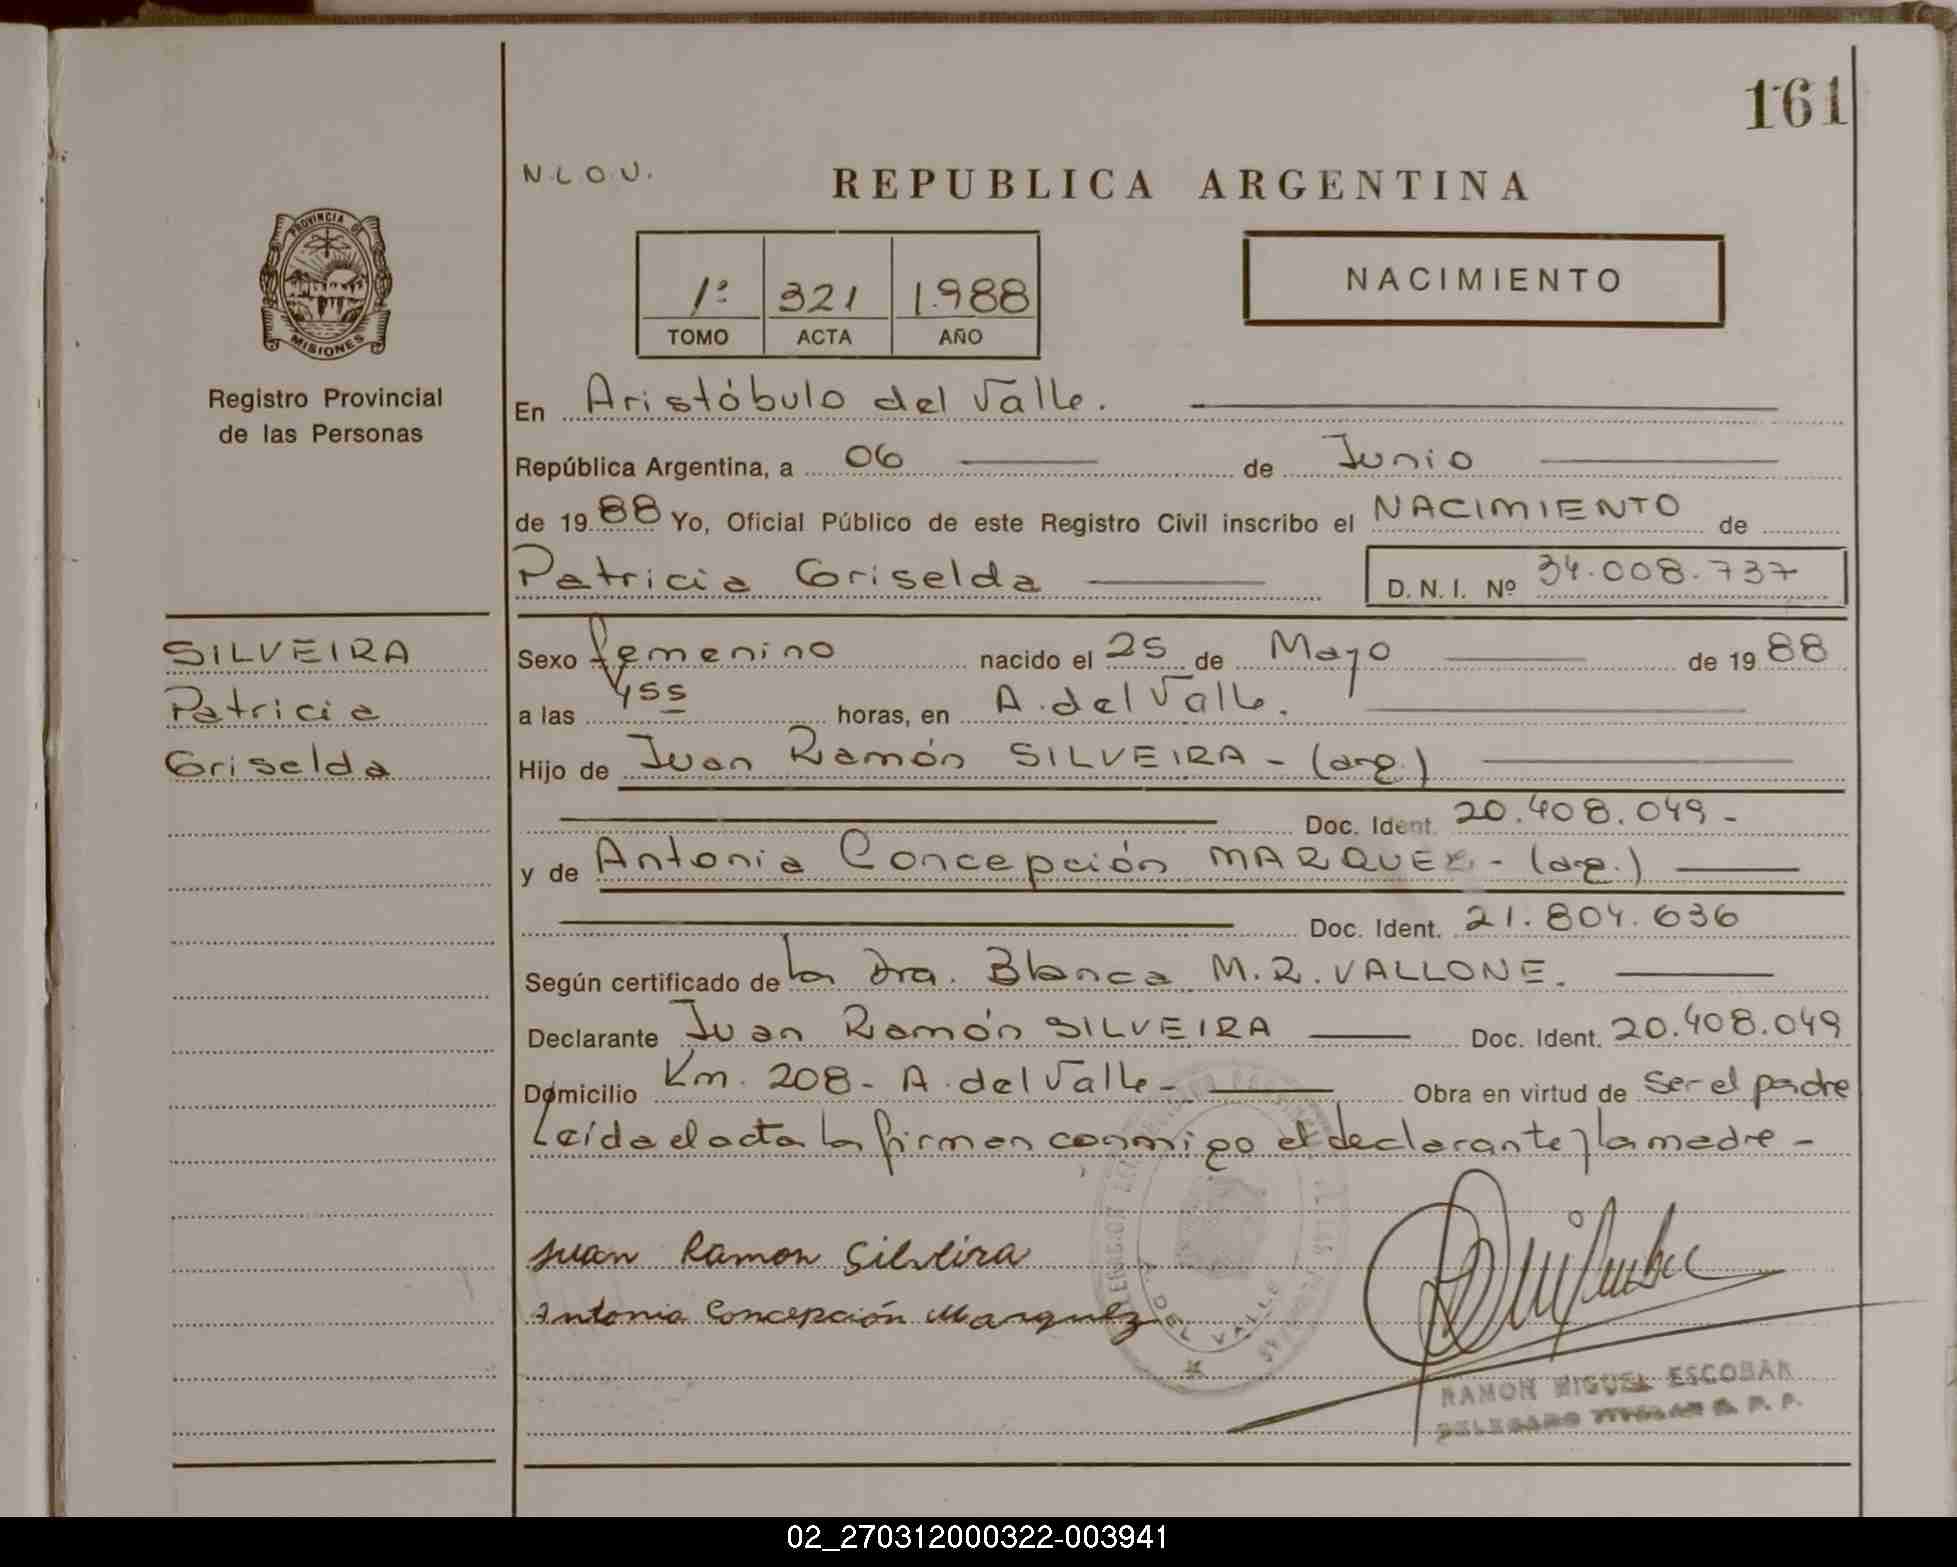 161
N.L.O.V.
REPUBLICA ARGENTINA
PROVINCIA DE
MISIONES
Registro Provincial
de las Personas
1º 321 1.988
TOMO ACTA AÑO
NACIMIENTO
En Aristóbulo del Valle.
República Argentina, a 06 de Junio
de 19 88 Yo, Oficial Público de este Registro Civil inscribo el NACIMIENTO de
Patricia Griselda D. N. I. Nº 34.008.737
SILVEIRA
Patricia
Griselda
Sexo femenino nacido el 25 de Mayo de 19 88
a las 455 horas, en A. del Valle.
Hijo de Juan Ramón SILVEIRA - (arg.)
Doc. Ident. 20.408.049 -
y de Antonia Concepción MARQUEZ - (arg.)
Doc. Ident. 21.804.636
Según certificado de la Dra. Blanca M.R. VALLONE.
Declarante Juan Ramón SILVEIRA Doc. Ident. 20.408.049
Domicilio Km. 208 - A. del Valle - Obra en virtud de ser el padre
Leída el acta la firman conmigo el declarante y la madre -
Juan Ramon Silveira
Antonia Concepción Marquez
DEL VALLE
RAMON MIGUEL ESCOBAR
DELEGADO TITULAR R. P. P.
02_270312000322-003941